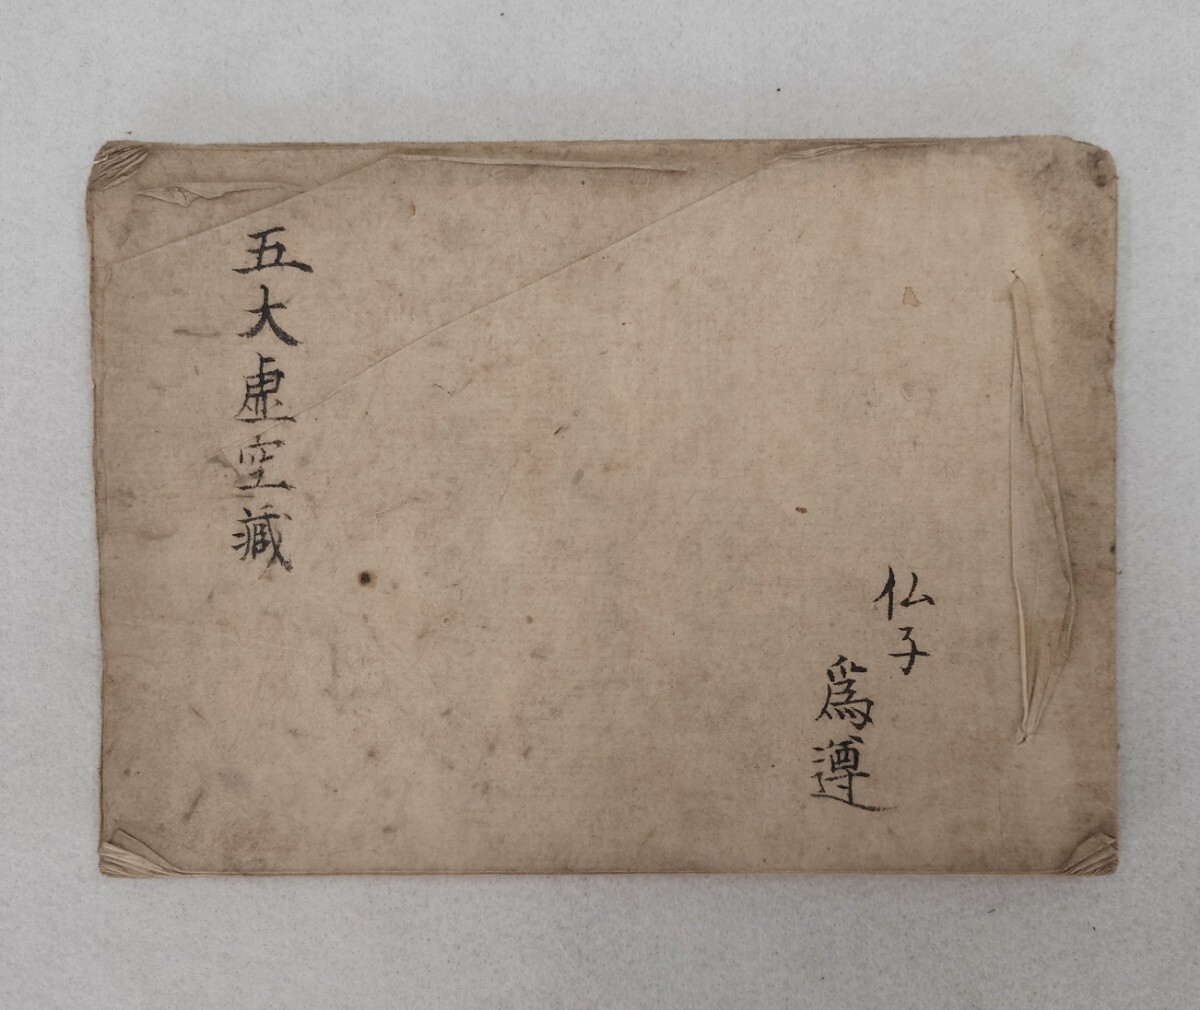 仏子
爲遵
五大虚空蔵